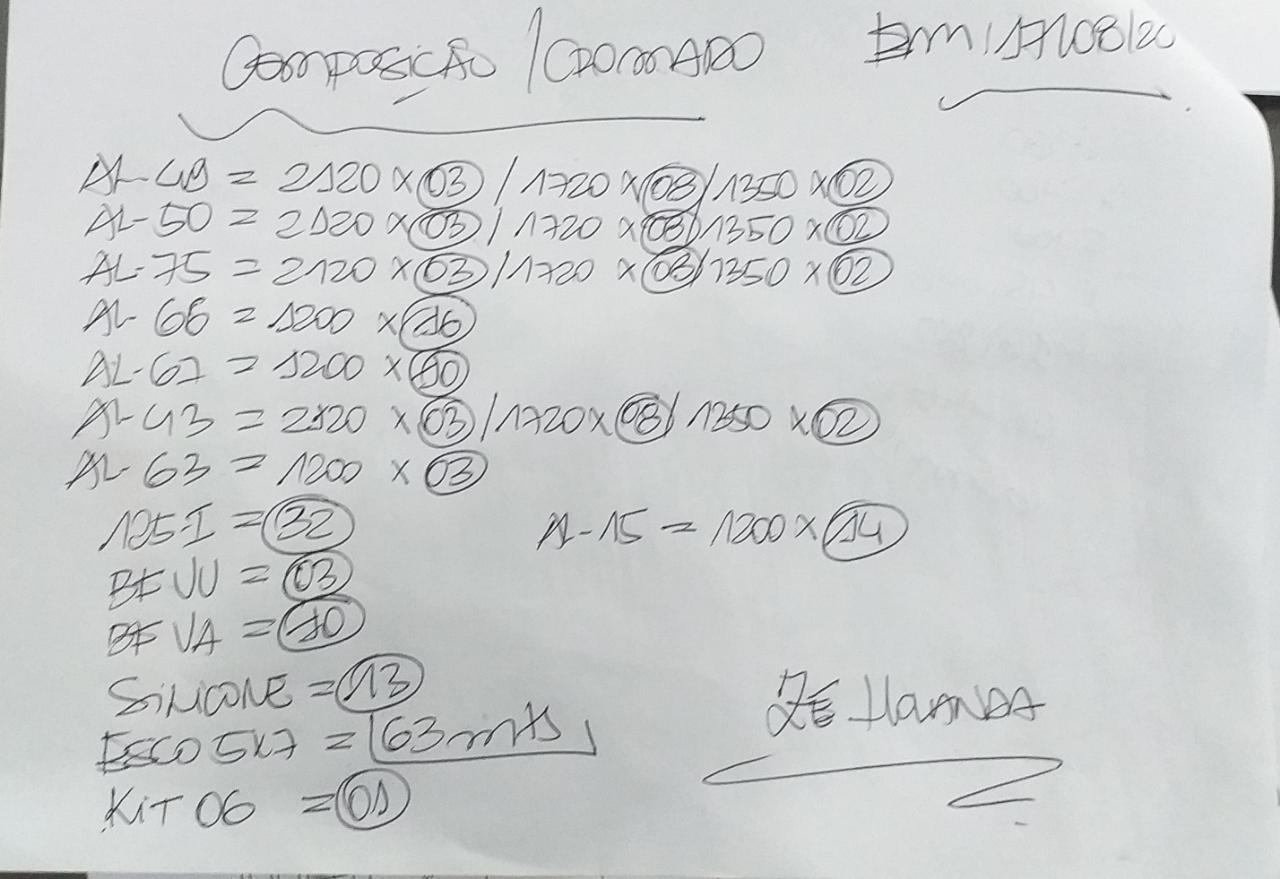 COMPOSIÇÃO / CROMADO EM 17/08/20
AL-49 = 2120 x 03 / 1720 x 08 / 1350 x 02
AL-50 = 2120 x 03 / 1720 x 08 / 1350 x 02
AL-75 = 2120 x 03 / 1720 x 08 / 1350 x 02
AL-66 = 1200 x 16
AL-67 = 1200 x 10
AL-43 = 2120 x 03 / 1720 x 08 / 1350 x 02
AL-63 = 1200 x 03
125-I = 32 AL-15 = 1200 x 14
BF VU = 03
BF VA = 10
SILICONE = 13
ESCO 5x7 = 63 mts
ZÉ HOLANDA
KIT 06 = 01